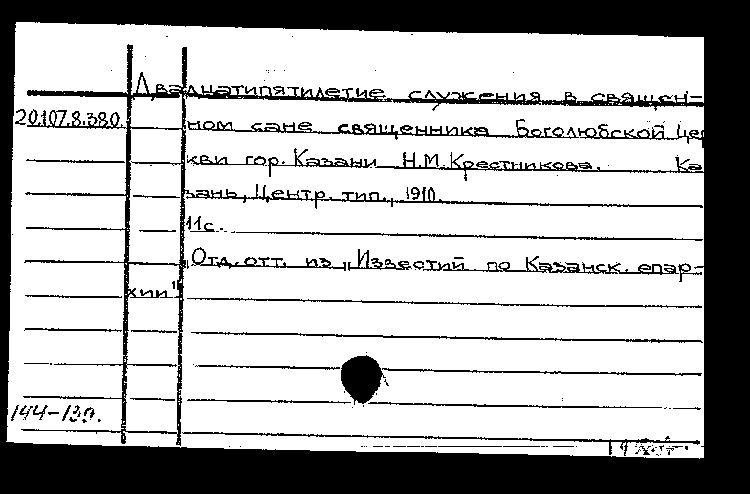 Двадцатипятилетие служения в священ-
20.107.8.380. ном сане священника Боголюбской Цер
кви гор. Казани Н.М. Крестникова. Ка
зань, Центр. тип., 1910.
11с.
Отд. отт. из „Известий по Казанск. епар-
хии"
144-130.
19